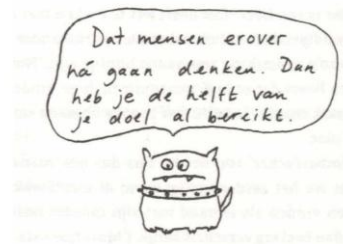 Dat mensen erover
há gaan denken. Dan
heb je de helft van
je doel al bereikt.